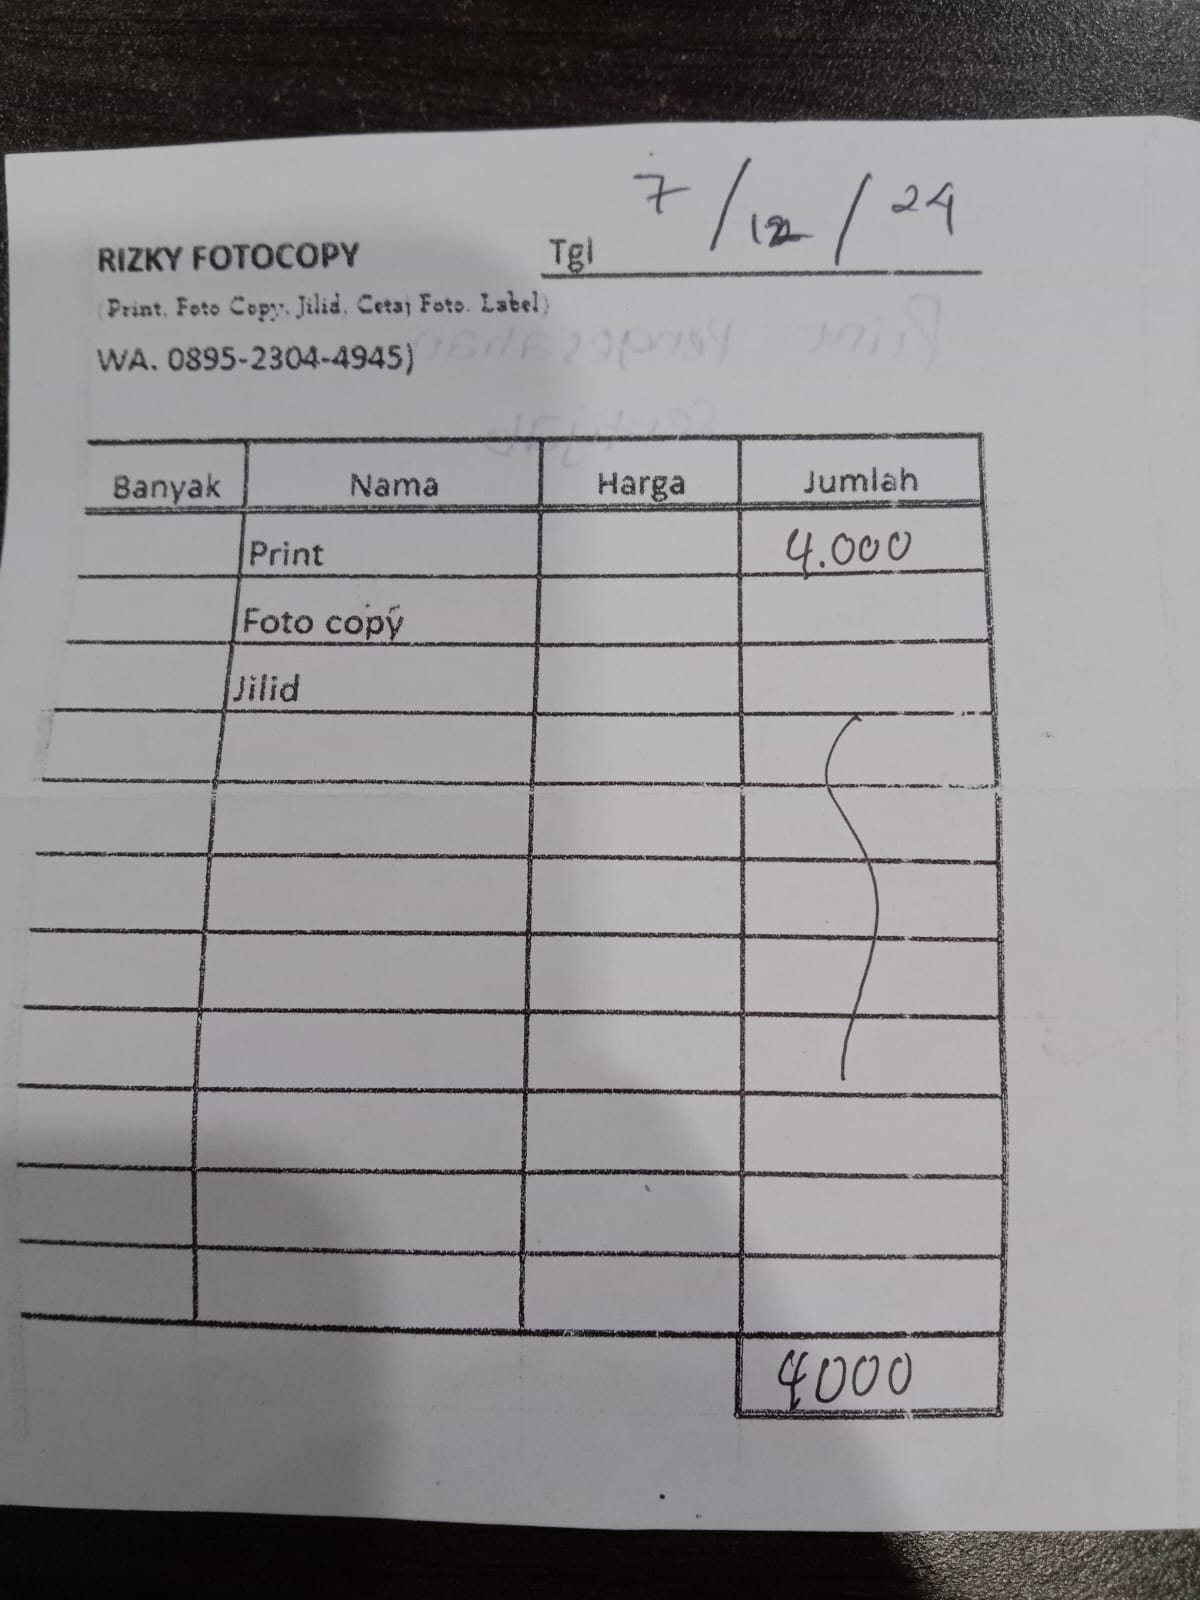 7/12/24
RIZKY FOTOCOPY Tgl
(Print, Foto Copy, Jilid, Cetaj Foto. Label)
WA. 0895-2304-4945)
Print Pengesahan
Banyak Nama Harga Jumlah
Print 4.000
Foto copy
Jilid
4000